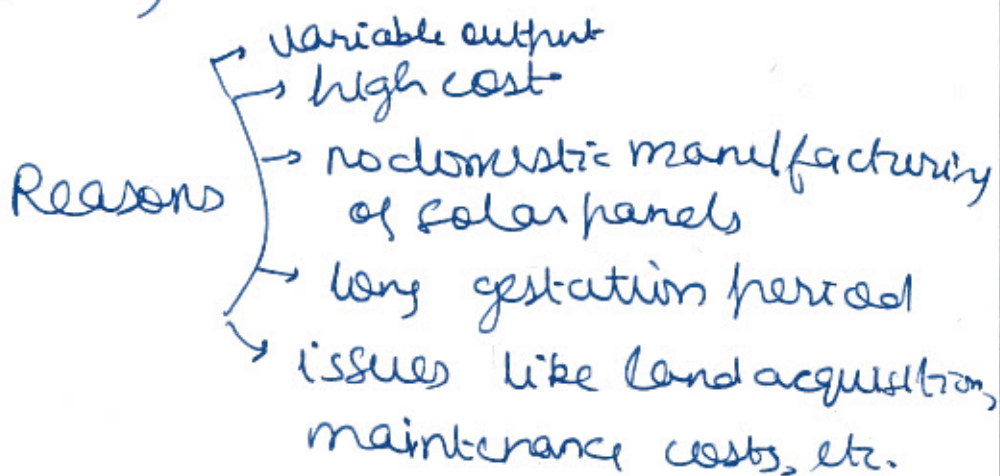 variable output
high cost
no domestic manufacturing
Reasons
of solar panels
long gestation period
issues like land acquisition,
maintenance costs, etc.